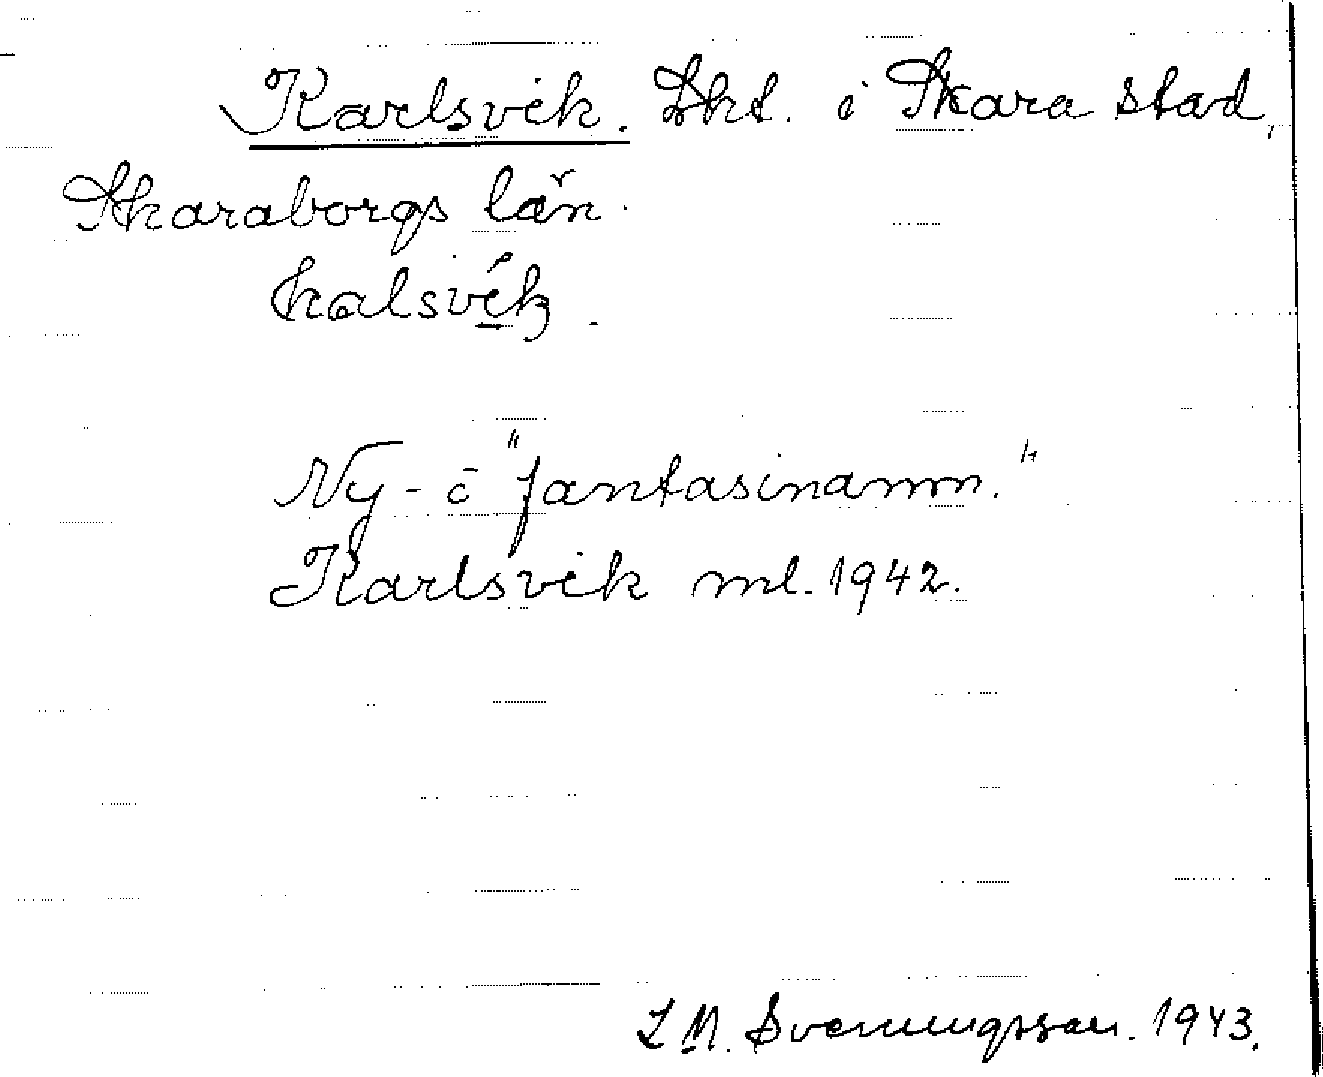 Karlsvik. Lht. i Skara stad,
Skaraborgs län.
kalsvik.
Ny- o "fantasinamn."
Karlsvik ml. 1942.
L M. Svenungsson. 1943.